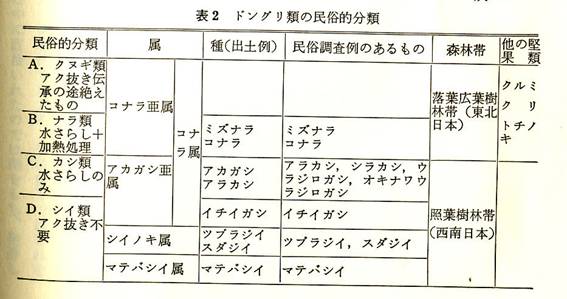 表2　ドングリ類の民俗的分類
民俗的分類　属　種(出土例)　民俗調査例のあるもの　森林帯　他の堅果類
A．クヌギ類
アク抜き伝
承の途絶え
たもの
コナラ亜属
コナラ属
B．ナラ類
水さらし＋
加熱処理
ミズナラ
コナラ
ミズナラ
コナラ
落葉広葉樹
林帯（東北
日本）
クルミ
クリ
トチノ
キ
C．カシ類
水さらしの
み
アカガシ亜
属
アカガシ
アラカシ
アラカシ，シラカシ，ウ
ラジロガシ，オキナワウ
ラジロガシ
D．シイ類
アク抜き不
要
イチイガシ
イチイガシ
シイノキ属
ツブラジイ
スダジイ
ツブラジイ，スダジイ
マテバシイ属
マテバシイ
マテバシイ
照葉樹林帯
（西南日本）